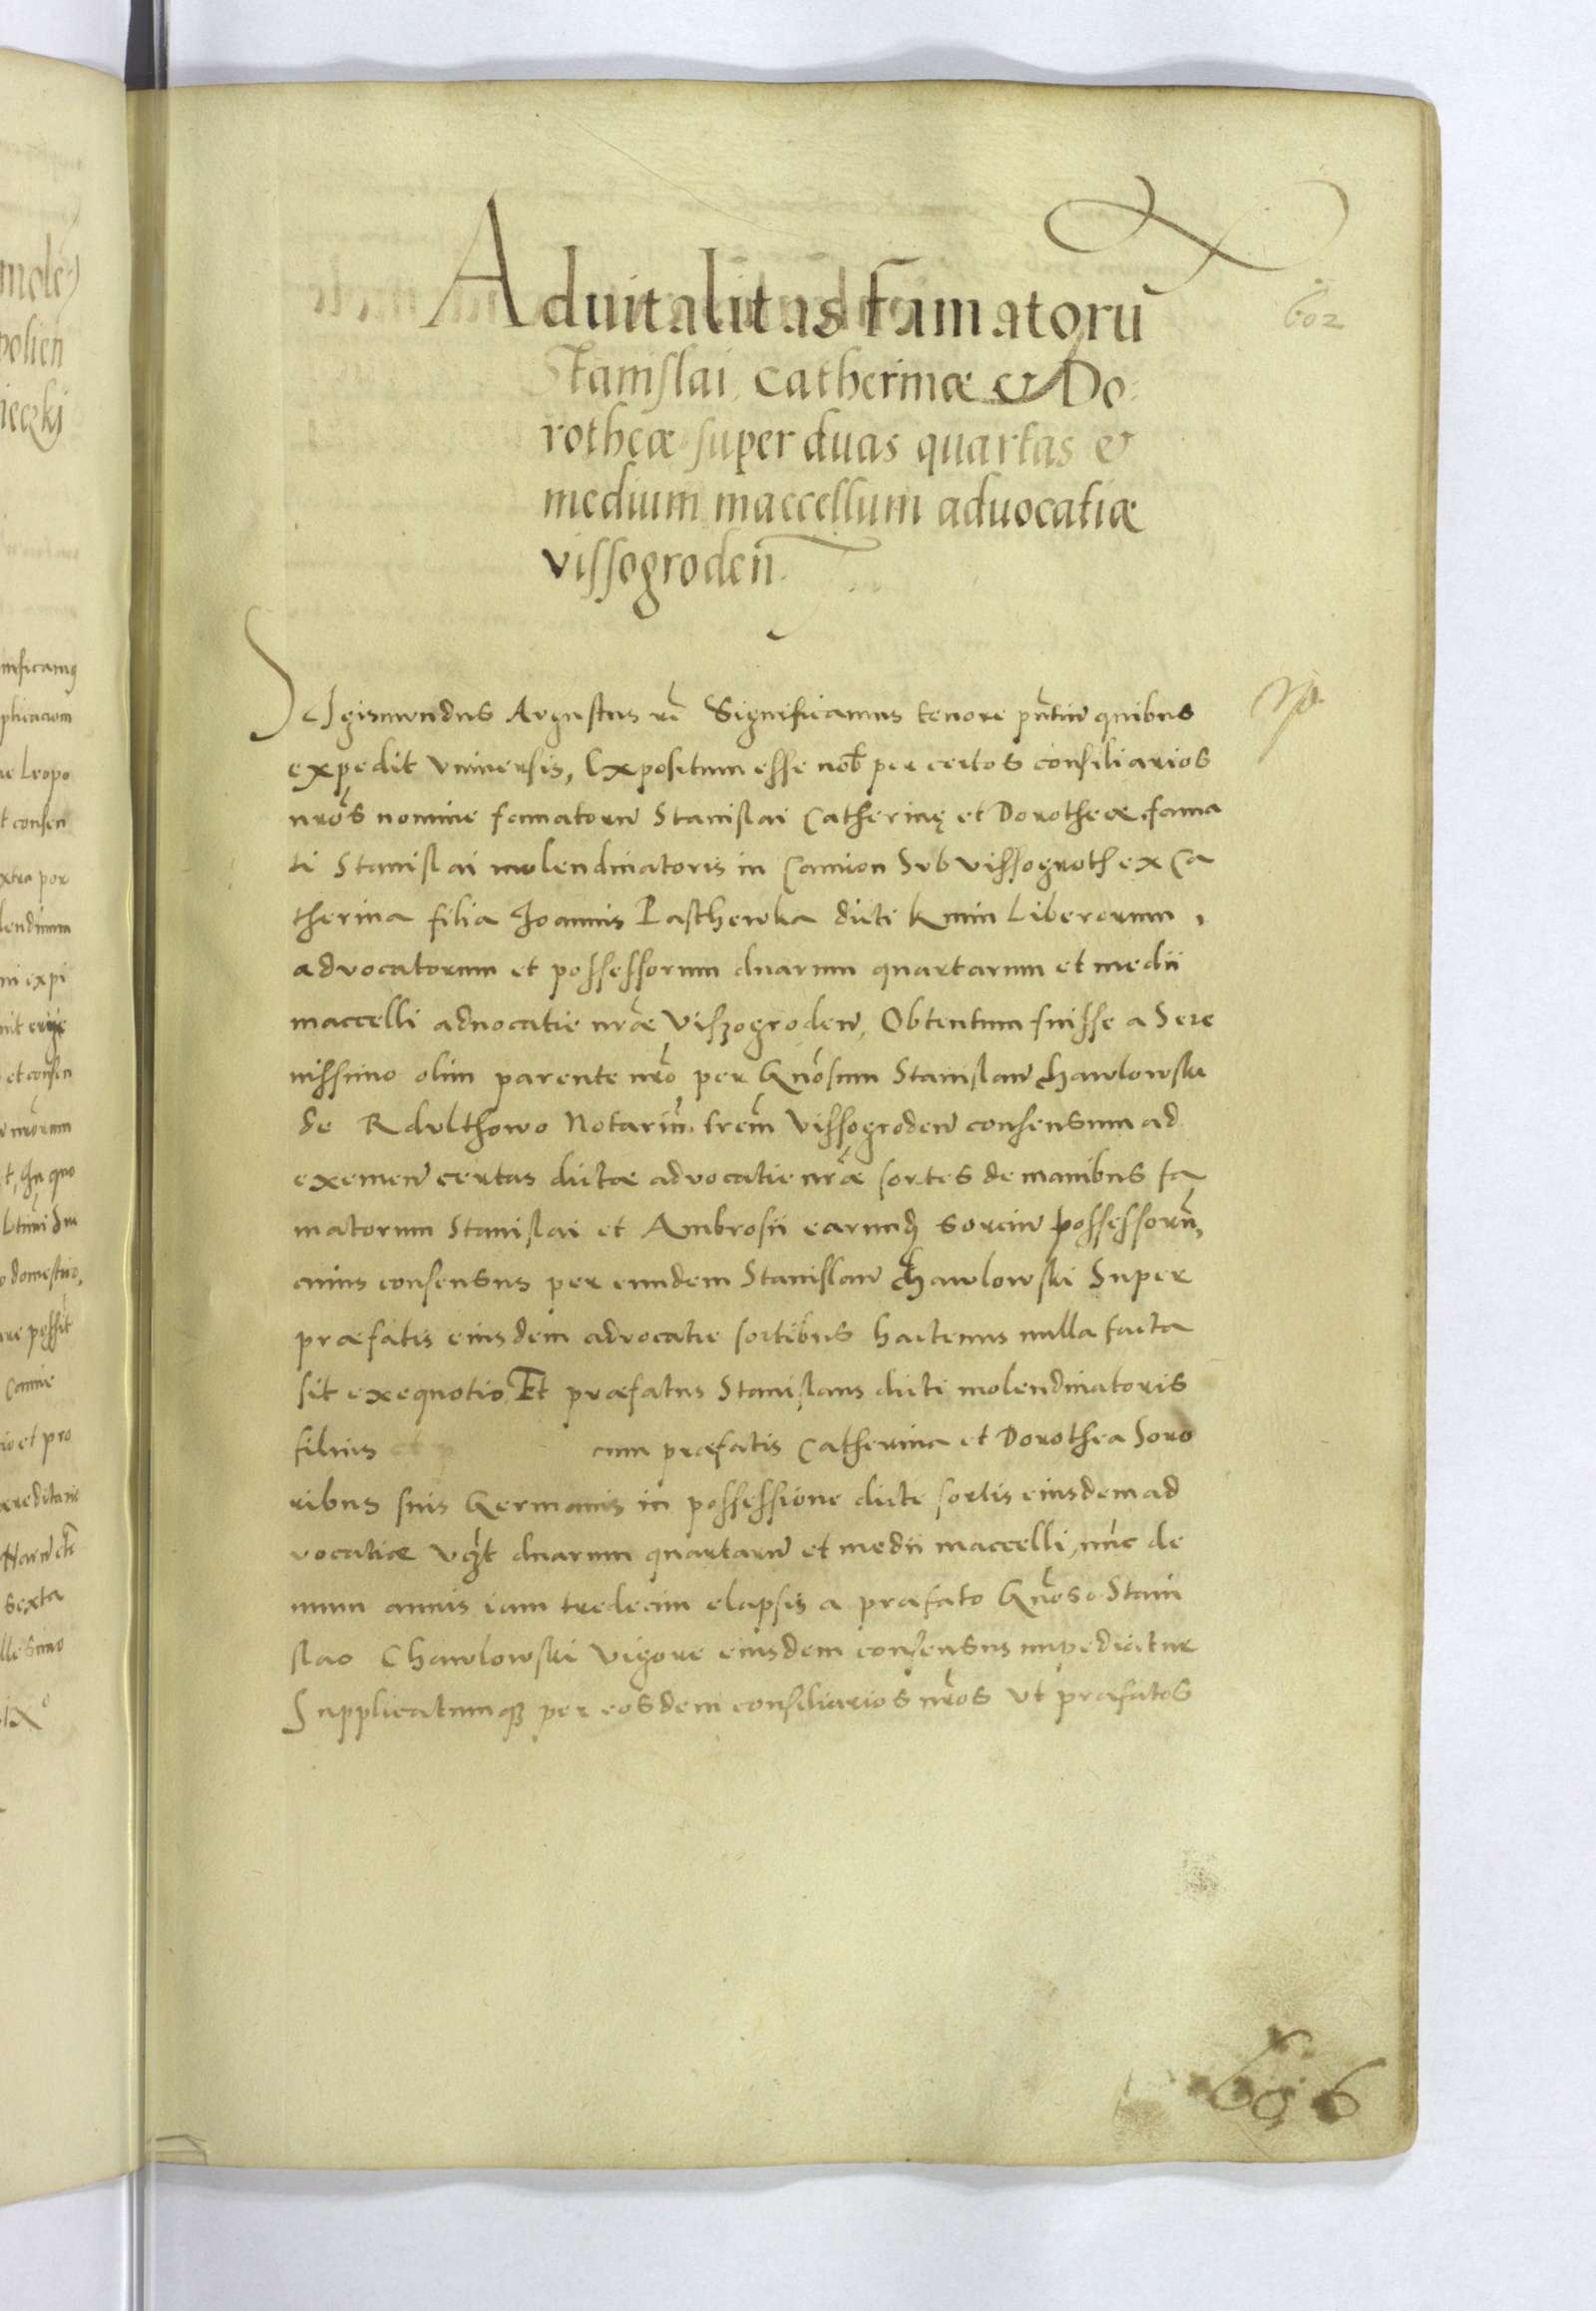 Aduitalitas famatorũ
602
Stanislai, Catherinæ & Do-
rotheæ super duas quartas &
medium maccellum aduocatiæ
vissogroden̄.
Sigismundus Augustus rẽ Significamus tenore pñtiũ quibus
expedit vniuersis, Expositum esse nob̃ per certos consiliarios
nrõs nomine famatorũ Stanislai Catherinę et Dorotheæ, fama
ti Stanislai molendinatoris in Camion Sub vissogroth ex Ca
therina filia Joannis Paschenka dicti Kmin Liberorum,
advocatorum et possessorum duarum quartarum et medii
maccelli aduocatie nrãe Viszogroden̄, Obtentum fuisse a Sere
nissimo olim parente nrõ per Gnõsum Stanislaũ Chawlowski
de Rdulthowo Notariũ. trem̃ Vissogroden̄ consensum ad
exemen̄ certas dictæ advocatie nrãe sortes de manibus fa
matorum Stanislai et Ambrosii earumq̃ sorciũ possessorũ,
cuius consensus per eundem Stanislaũ Chawlowski Super
præfatis eiusdem advocatie sortibus hactenus nulla facta
sit exequotio, Et præfatus Stanislaus dicti molendinatoris
filius cum præfatis Catherina et Dorothea Soro
ribus suis Germanis in possessione dicte sortis eiusdem ad
vocatiæ vcz̃t duarum quartarũ et medii maccelli, nũc de
mum annis iam tredecim elapsis a præfato Gnõso Stani
slao Chawlowski vigore eiusdem consensus impediatur
Supplicatumq; per eosdem consiliarios nrõs vt præfatos
606